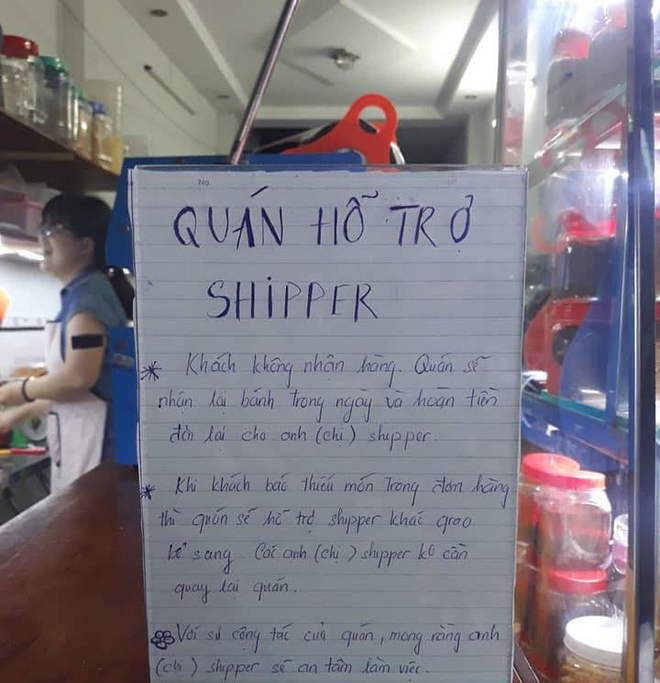 No.
QUÁN HỖ TRỢ
SHIPPER
* Khách không nhận hàng. Quán sẽ
nhận lại bánh trong ngày và hoàn tiền
đơn lại cho anh (chị) shipper.
* Khi khách báo thiếu món trong đơn hàng
thì quán sẽ hỗ trợ shipper khác giao
sang. Các anh (chị) shipper ko cần
quay lại quán.
Với sự cộng tác của quán, mong rằng anh
(chị) shipper sẽ an tâm làm việc.